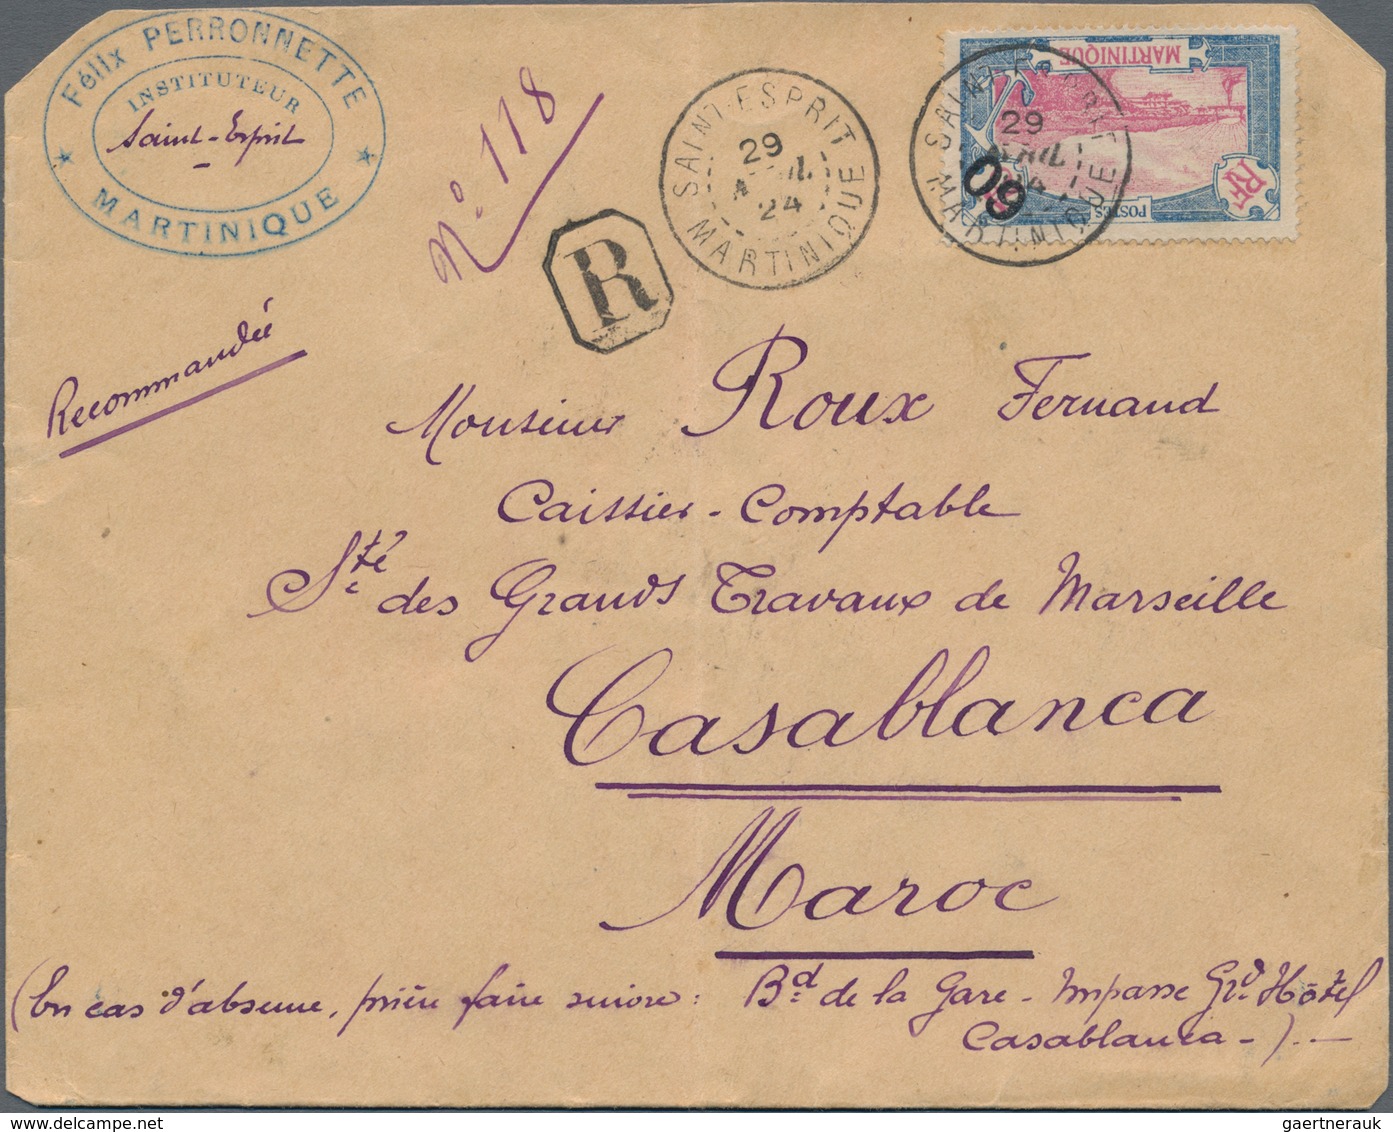 Félix PERRONNETTE
INSTITUTEUR
Saint-Esprit
MARTINIQUE
N° 118
R
SAINT-ESPRIT
29
AVRIL
24
MARTINIQUE
MARTINIQUE
RF
POSTES
60
29
AVRIL
MARTINIQUE
Recommandée
Monsieur Roux Fernand
Caissier-Comptable
Sté des Grands Travaux de Marseille
Casablanca
Maroc
(En cas d'absence, prière faire suivre : Bd de la Gare - Impasse Grd Hôtel
Casablanca -) . —
gaertnerauk